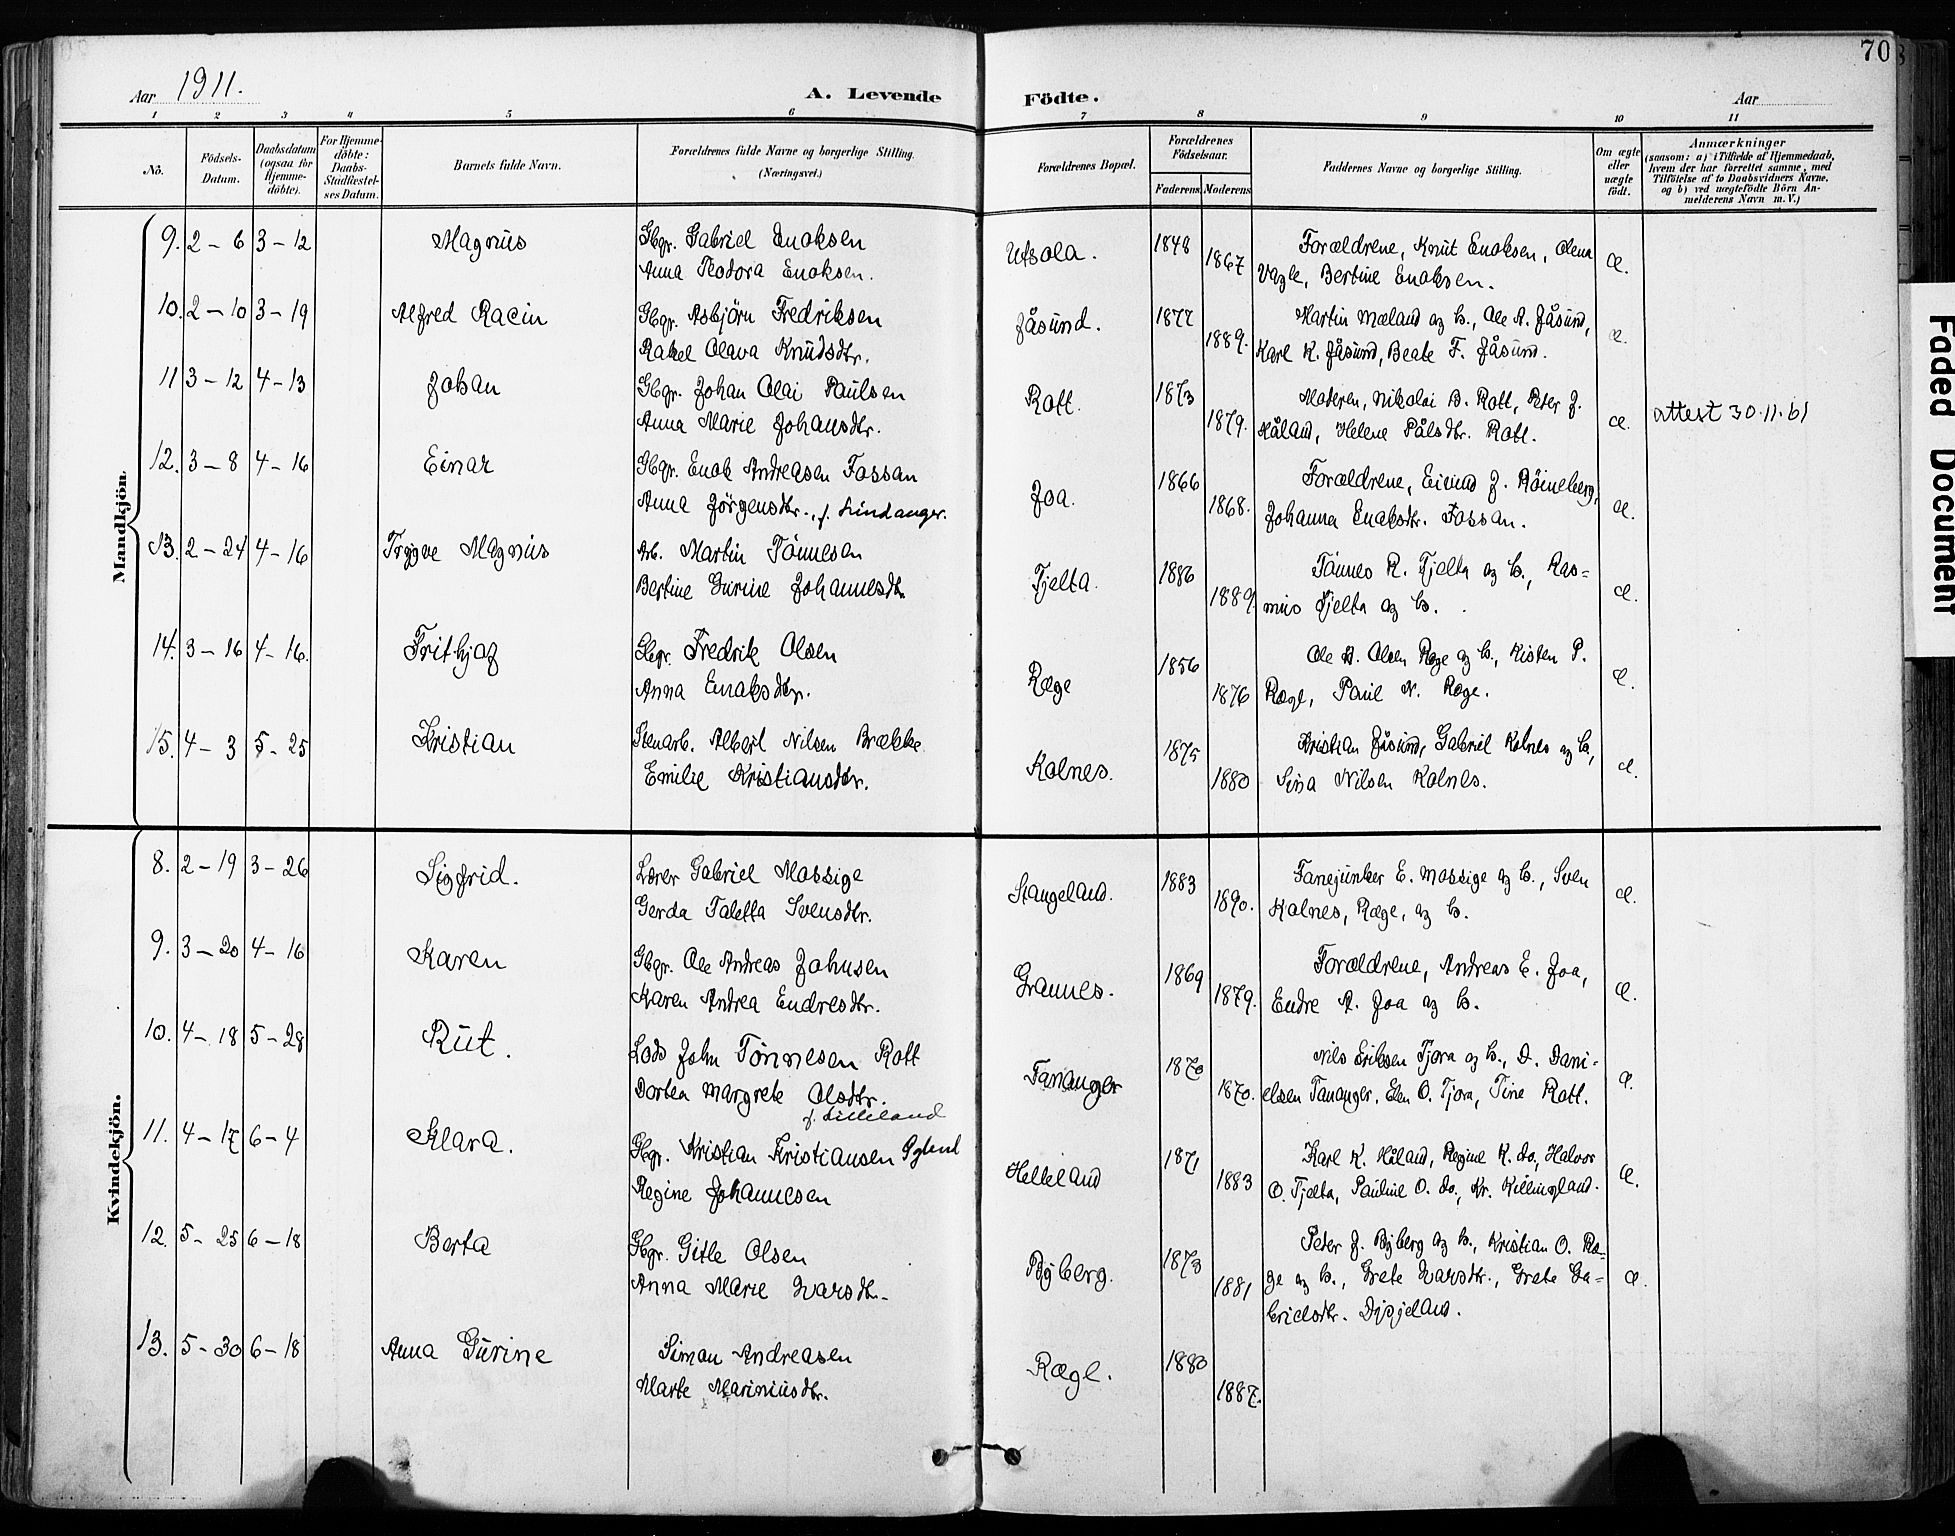 70
Aar 1911.
A. Levende Födte.
Aar
1 2 3 4 5 6 7 8 9 10 11
No.
Födsels-Datum.
Daabsdatum (ogsaa for Hjemme-döbte).
For Hjemme-döbte: Daabs-Stadfæstel-ses Datum.
Barnets fulde Navn.
Forældrenes fulde Navne og borgerlige Stilling. (Næringsvei.)
Forældrenes Bopæl.
Forældrenes Födselsaar.
Faderens Moderens
Faddernes Navne og borgerlige Stilling.
Om ægte eller uægte födt.
Anmærkninger
(saasom: a) i Tilfælde af Hjemmedaab,
hvem der har forrettet samme, med
Tilföielse af to Daabsvidners Navne,
og b) ved uægtefödte Börn An-
melderens Navn m. V.)
Mandkjön.
9. 2-6 3-12 Magnus Gbgr. Gabriel Enoksen Utsola. 1848 Forældrene, Knut Enoksen, Olena æ.
Anna Teodora Enoksen. 1867 Vagle, Bertine Enoksen.
10. 2-10 3-19 Alfred Racin Gbgr. Asbjörn Fredriksen Jåsund. 1877 Martin Mæland og h., Ole A. Jåsund, æ.
Rakel Olava Knudsdtr. 1889. Karl K. Jåsund, Beate F. Jåsund.
11 3-12 4-13 Johan Gbgr. Johan Olai Paulsen Rott. 1873 Moderen, Nikolai B. Rott, Peter J. æ. attest 30.11.61
Anna Marie Johansdtr. 1879. Håland, Helene Pålsdtr. Rott.
12. 3-8 4-16 Einar Gbgr. Enok Andreasen Fossan Joa. 1866 Forældrene, Eivind J. Røineberg, æ.
Anna Jörgensdtr. f. Lindanger. 1868. Johanna Enoksdtr. Fossan.
13. 2-24 4-16 Trygve Magnus Arb. Martin Tönnesen Tjelta. 1886 Tönnes R. Tjelta og h., Ras= æ.
Bertine Gurine Johannesdtr. 1889. mus Tjelta og h.
14. 3-16 4-16. Frithjof Gbgr. Fredrik Olsen Ræge 1856 Ole A. Olsen Ræge og h., Kisten P. æ.
Anna Enoksdtr. 1876 Ræge, Paul N. Ræge.
15. 4-3 5-25 Kristian Stenarb. Albert Nilsen Brække Kolnes. 1875 Kristian Jåsund, Gabriel Kolnes og h., æ.
Emilie Kristiansdtr. 1880 Sina Nilsen Kolnes.
Kvindekjön.
8. 2-19 3-26 Sigfrid. Lærer Gabriel Mossige Stangeland. 1883 Fanejunker E. Mossige og h., Sven æ.
Gerda Taletta Svensdtr. 1890. Kolnes, Ræge, og h.
9. 3-20 4-16 Karen Gbgr. Ole Andreas Johnsen Grannes. 1869 Forældrene, Andreas E. Joa, æ.
Karen Andrea Endresdtr. 1879. Endre A. Joa og h.
10. 4-18 5-28 Rut. Lods John Tönnesen Rott Tananger 1870 Nils Eriksen Tjora og h., D. Dani= æ.
Dortea Margrete Olsdtr. 1870. elsen Tananger, Elen O. Tjora, Tine Rott.
f. Litleland
11. 4-17 6-4 Klara. Gbgr. Kristian Kristiansen Helleland 1871 Karl K. Håland, Regine K. do, Halvor æ.
Regine Johannesen 1883 O. Tjelta, Pauline O. do., Kr. Killingland.
12. 5-25 6-18 Berta Gbgr. Gitle Olsen Byberg. 1873 Peter J. Byberg og h., Kristian O. Ræ=
Anna Marie Ivarsdtr. 1881 ge og h., Grete Ivarsdtr., Grete Ga= æ.
brielsdtr.
13. 5-30 6-18 Anna Gurine Simon Andreasen Ræge. 1880
Marte Mariniusdtr. 1887.
Faded Document